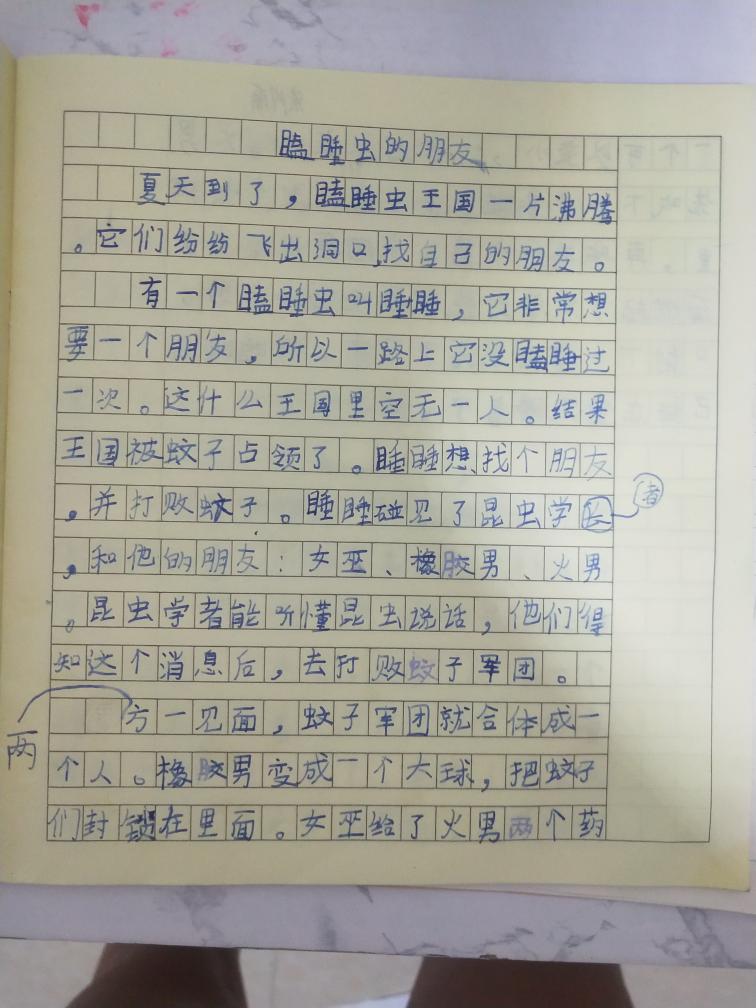 瞌睡虫的朋友
夏天到了，瞌睡虫王国一片沸腾
。它们纷纷飞出洞口，找自己的朋友。
有一个瞌睡虫叫睡睡，它非常想
要一个朋友，所以一路上它没瞌睡过
一次。这什么王国里空无一人。结果
王国被蚊子占领了。睡睡想找个朋友
，并打败蚊子。睡睡碰见了昆虫学者
，和他的朋友：女巫、橡胶男、火男
。昆虫学者能听懂昆虫说话，他们得
知这个消息后，去打败蚊子军团。
两方一见面，蚊子军团就合体成一
个人。橡胶男变成一个大球，把蚊子
们封锁在里面。女巫给了火男两个药